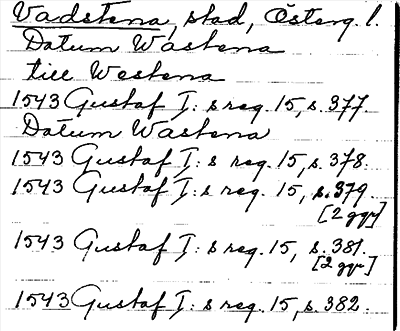 Vadstena, stad, Österg. l.
Datum Wastena
till Westena
1543 Gustaf I: s reg. 15, s. 377.
Datum Wastena
1543 Gustaf I: s reg. 15, s. 378.
1543 Gustaf I: s reg. 15, s. 379.
[2 ggr]
1543 Gustaf I: s reg. 15, s. 381.
[2 ggr]
1543 Gustaf I: s reg. 15, s. 382.